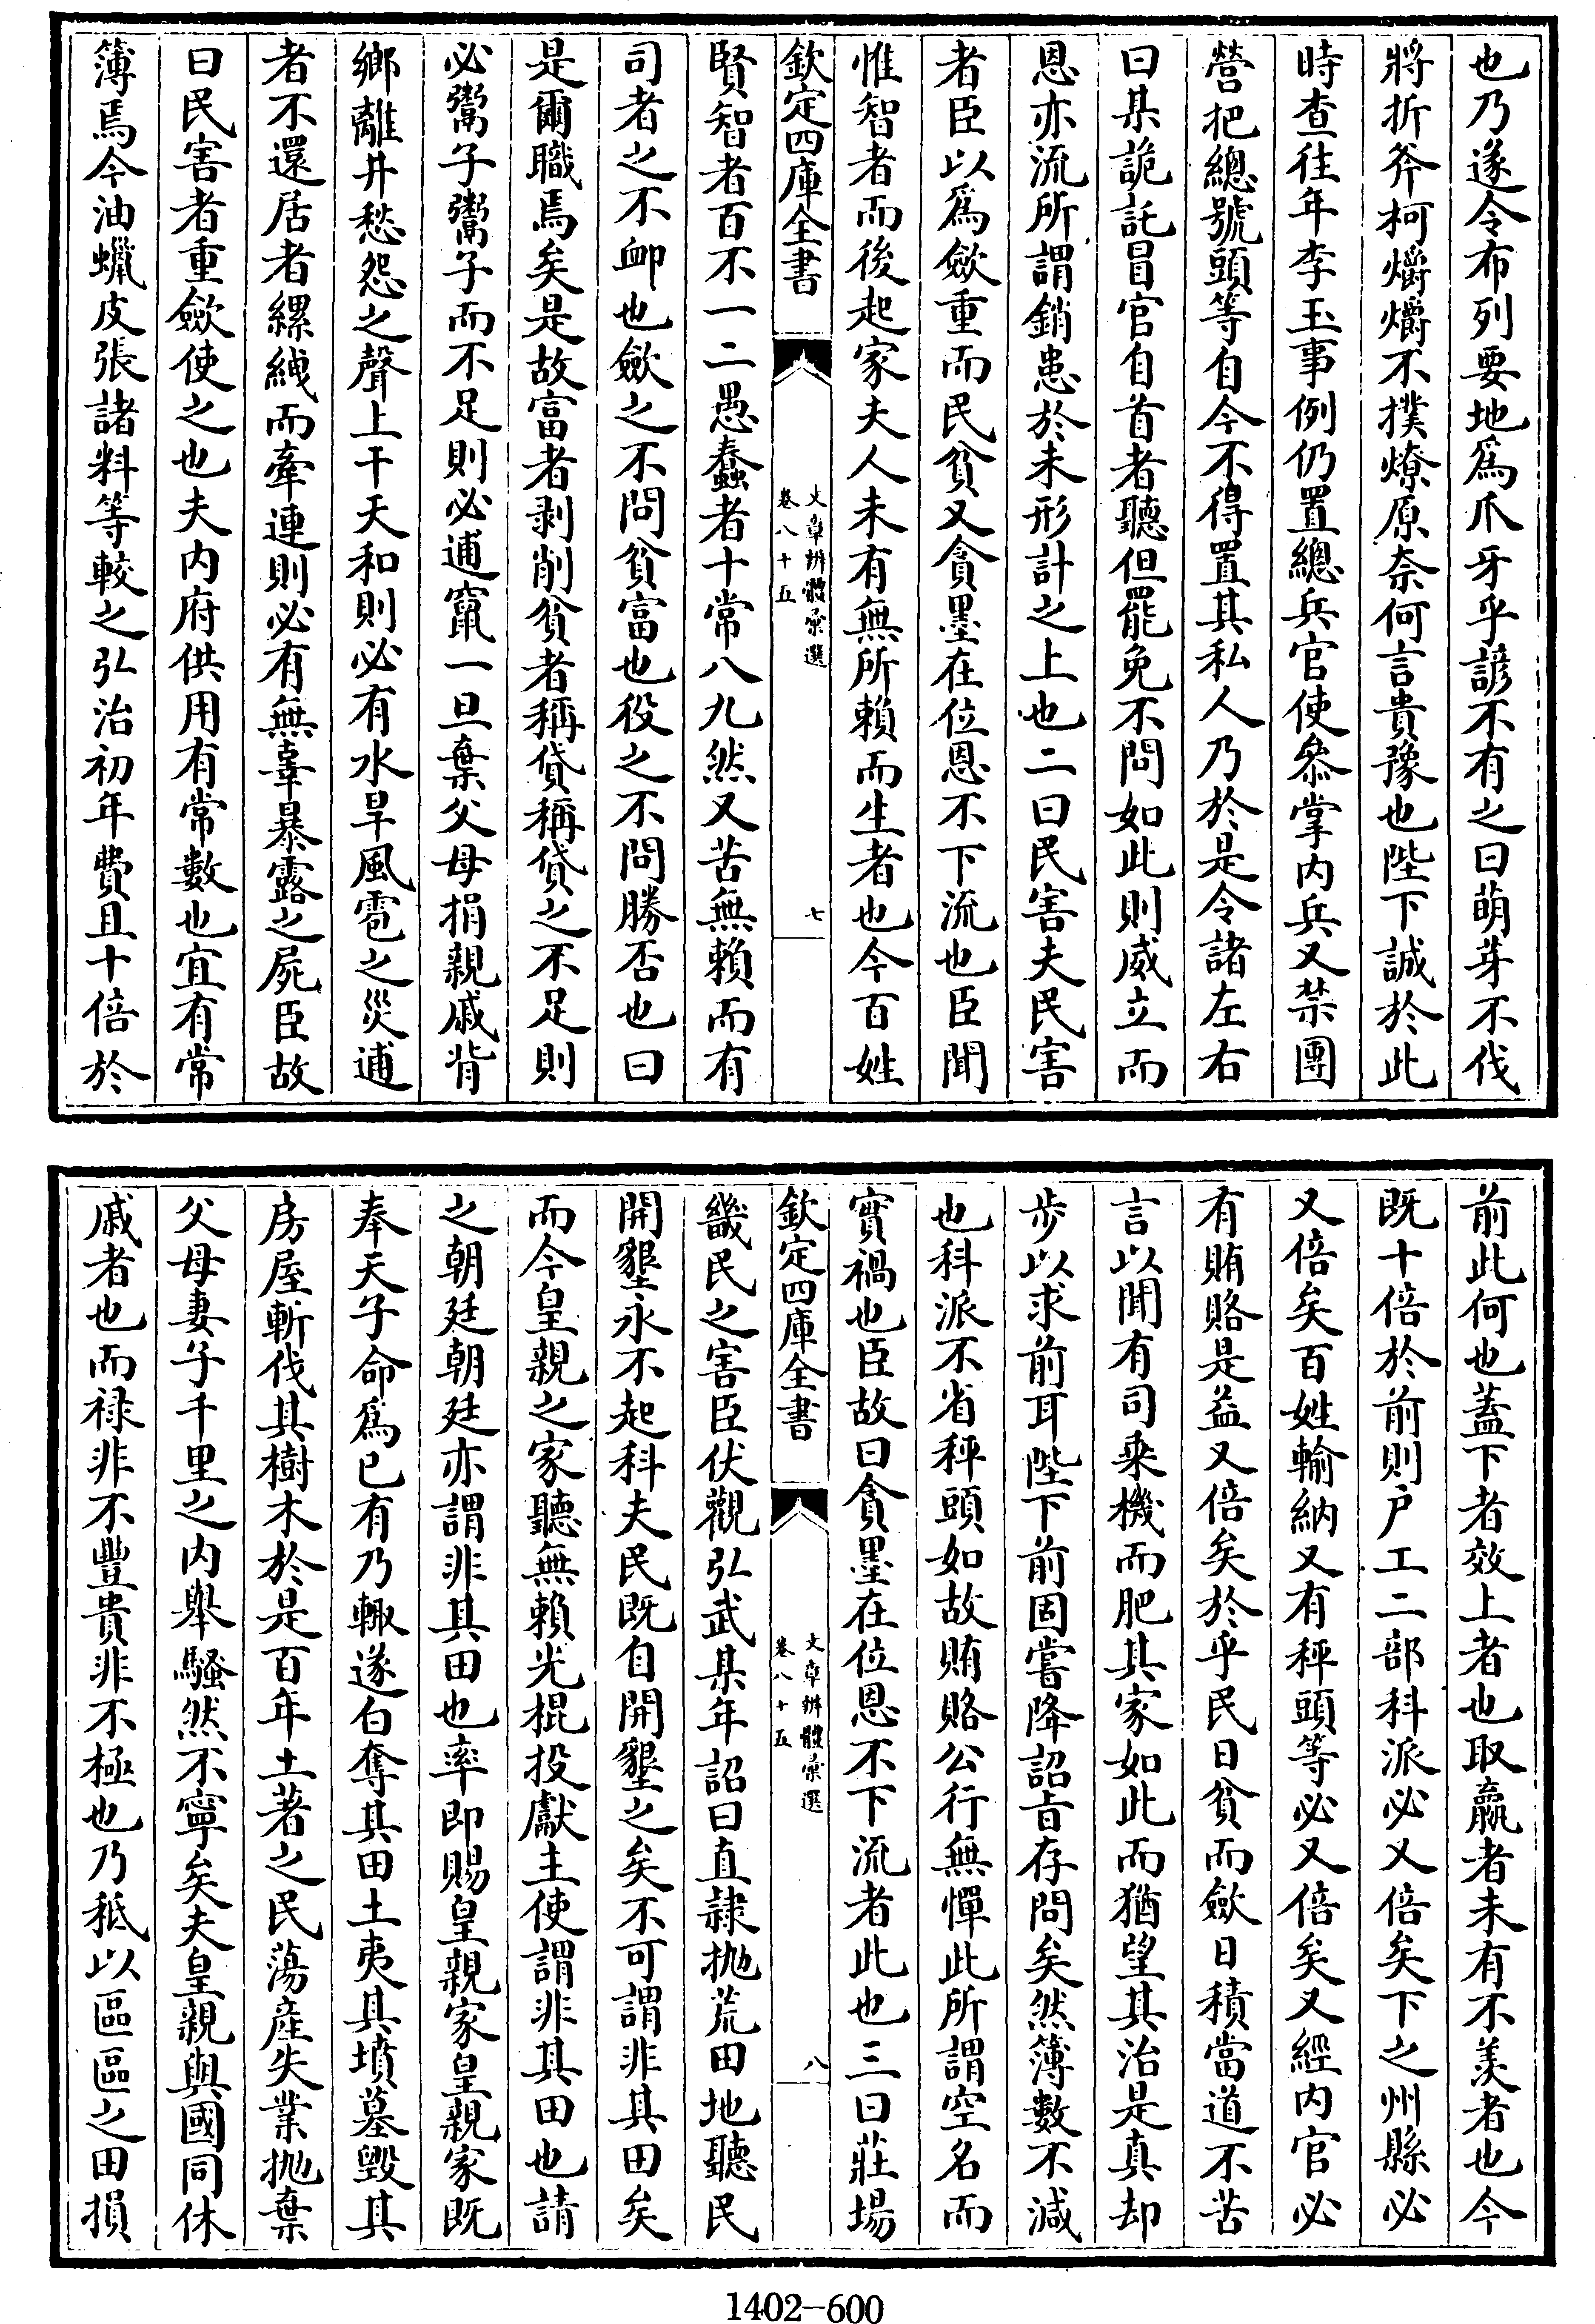 也乃遂令布列要地爲爪牙乎諺不有之曰萌芽不伐
將折斧柯爝爝不撲燎原奈何言貴豫也陛下誠於此
時查往年李玉事例仍置總兵官使叅掌内兵又禁團
營把總號頭等自今不得置其私人乃於是令諸左右
曰某詭託冒官自首者聽但罷免不問如此則威立而
恩亦流所謂銷患於未形計之上也二曰民害夫民害
者臣以爲斂重而民貧又貪墨在位恩不下流也臣聞
惟智者而後起家夫人未有無所賴而生者也今百姓
欽定四庫全書
文章辨體彚選
卷八十五
七
賢智者百不一二愚蠢者十常八九然又苦無賴而有
司者之不卹也斂之不問貧富也役之不問勝否也曰
是爾職焉矣是故富者剥削貧者稱貸稱貸之不足則
必鬻子鬻子而不足則必逋竄一旦棄父母捐親戚背
鄉離井愁怨之聲上干天和則必有水旱風雹之災逋
者不還居者縲絏而牽連則必有無辜暴露之屍臣故
曰民害者重斂使之也夫内府供用有常數也宜有常
簿焉今油蠟皮張諸料等較之弘治初年費且十倍於
前此何也蓋下者效上者也取贏者未有不羡者也今
既十倍於前則户工二部科派必又倍矣下之州縣必
又倍矣百姓輸納又有秤頭等必又倍矣又經内官必
有賄賂是益又倍矣於乎民日貧而斂日積當道不苦
言以聞有司乘機而肥其家如此而猶望其治是真却
步以求前耳陛下前固嘗降詔旨存問矣然簿數不減
也科派不省秤頭如故賄賂公行無憚此所謂空名而
實禍也臣故曰貪墨在位恩不下流者此也三曰莊場
欽定四庫全書
文章辨體彚選
卷八十五
八
畿民之害臣伏觀弘武某年詔曰直隷抛荒田地聽民
開墾永不起科夫民既自開墾之矣不可謂非其田矣
而今皇親之家聽無賴光棍投獻主使謂非其田也請
之朝廷朝廷亦謂非其田也率即賜皇親家皇親家既
奉天子命爲已有乃輙遂白奪其田土夷其墳墓毁其
房屋斬伐其樹木於是百年土著之民蕩産失業抛棄
父母妻子千里之内舉騷然不寧矣夫皇親與國同休
戚者也而禄非不豐貴非不極也乃秪以區區之田損
1402-600